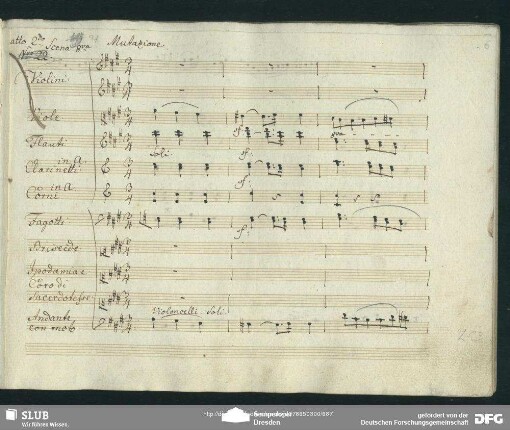 atto 2do Scena Mutazione
Violini
Viole
Flauti
Soli
Clarinetti in A
Corni in A
Fagotti
Briseide
Ipodamia e
Coro di
Sacerdotesse
Violoncelli Soli
Andante
con moto
SLUB
Wir führen Wissen.
Dresden
gefördert von der
Deutschen Forschungsgemeinschaft
DFG